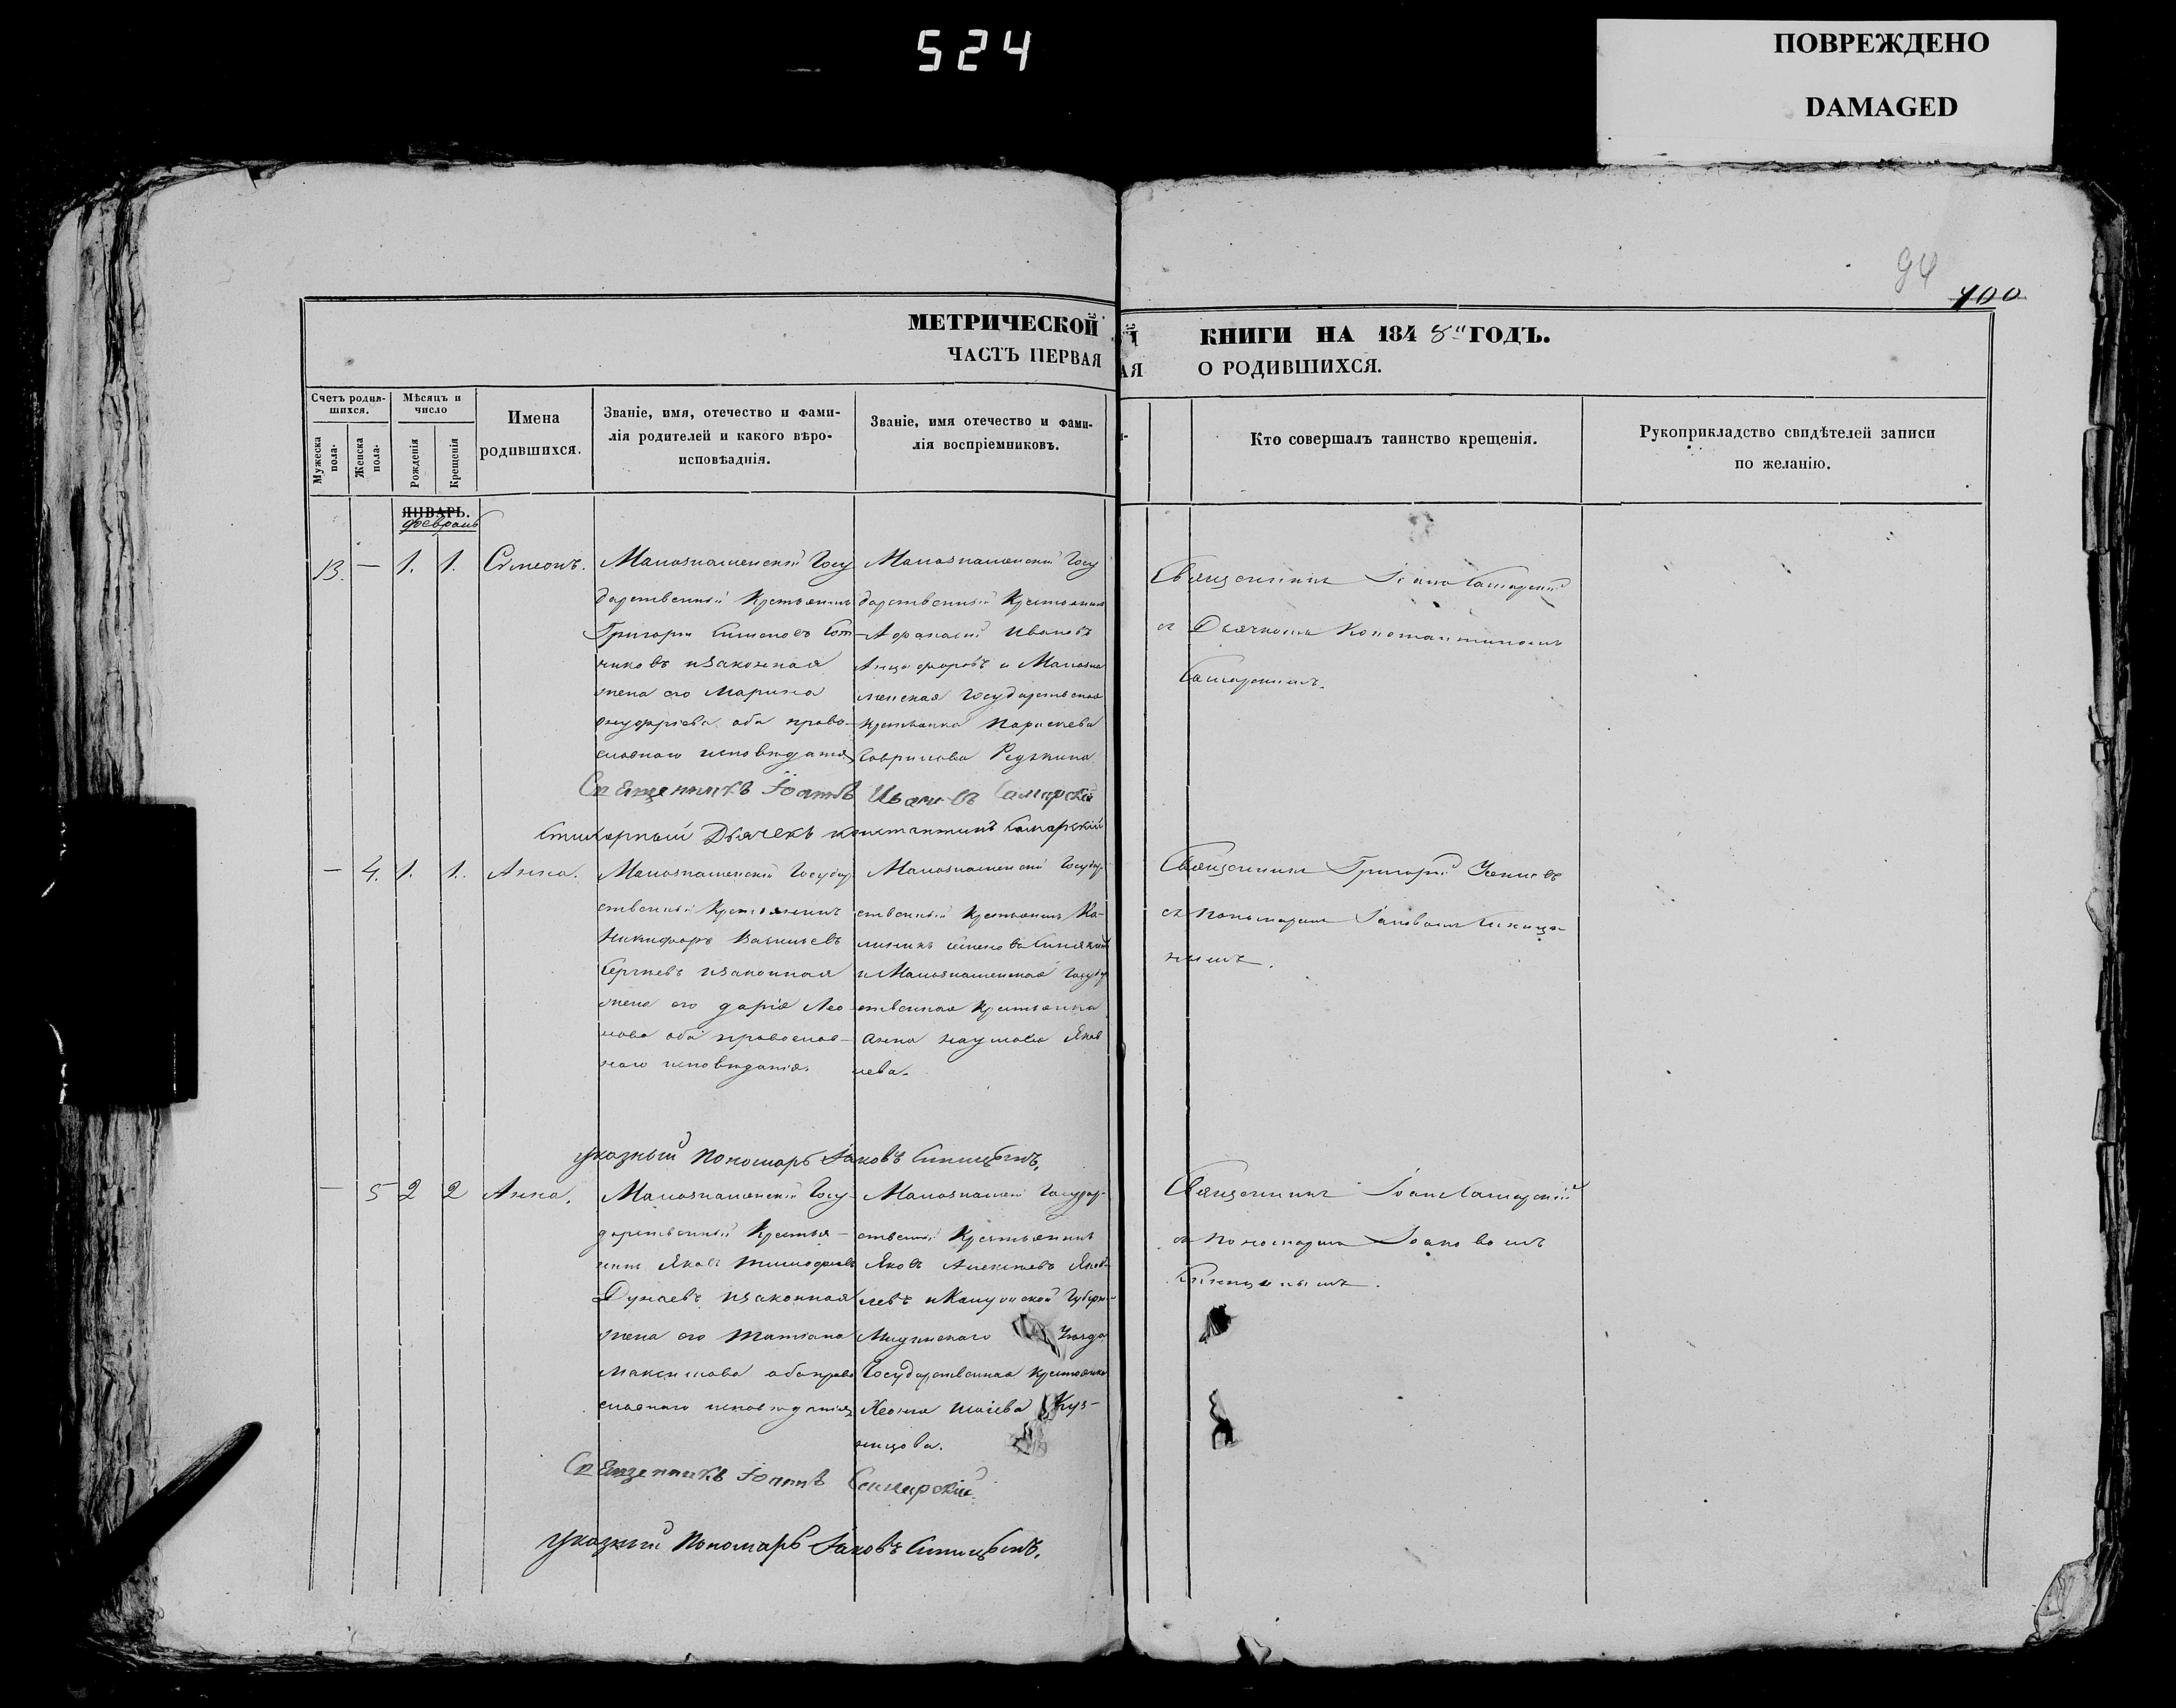 524
ПОВРЕЖДЕНО
DAMAGED
94
100
МЕТРИЧЕСКОЙ
ЧАСТЬ ПЕРВАЯ
КНИГИ НА 1848й ГОДЪ.
О РОДИВШИХСЯ.
Счетъ родив-
шихся.
Мужеска
пола.
Женска
пола.
Мѣсяцъ и
число
Рожденія
Крещенія
Имена
родившихся.
Званіе, имя, отечество и фами-
лія родителей и какого вѣро-
исповѣаднія.
Званіе, имя отечество и фами-
лія воспріемниковъ.
Кто совершалъ таинство крещенія.
Рукоприкладство свидѣтелей записи
по желанію.
ЯНВАРЬ.
февраль
13. — 1. 1. Сѵмеонъ.
Малознаменскій Госу
дарственный Крестьянинъ
Григорій Симеоновъ
чиковъ изаконная
жена его Марина
Онуфріева оба право-
славнаго исповѣданія
Малознаменскій Госу
дарственный Крестьянинъ
Афанасій Ивановъ
Анцыфоровъ и Малозна
менская Государственная
Крестьянка Параскева
Гаврилова Редькина.
Священникъ Іоаннъ Самарскій
съ Дьячкомъ Константиномъ
Самарскимъ.
Священникъ Іоаннъ Ивановъ Самарскій
Стихарный Дьячекъ Константинъ Самарскій
— 4. 1. 1. Анна.
Малознаменскій Государ
ственный Крестьянинъ
Никифоръ Васильевъ
Сергѣевъ изаконная
жена его Дарія Лео
нова оба православ-
наго исповѣданія.
Малознаменскій Государ
ственный Крестьянинъ Ка-
линикъ Семеновъ
и Малознаменская Государ
ственная Крестьянка
Анна Наумова Яков
лева.
Священникъ Григорій
съ Пономаремъ Іаковомъ Синицы
нымъ.
Указный Пономарь Іаковъ Синицынъ.
— 5 2 2 Анна.
Малознаменскій Госу-
дарственный Крестья-
нинъ Яковъ Тимофеевъ
Дунаевъ изаконная
жена его Татіана
Максимова оба право
славнаго исповѣданія
Малознаменскій Государ-
ственный Крестьянинъ
Яковъ Алексѣевъ Яков-
левъ и Калужской Губерн
Мядынскаго Уѣзда
Государственная Крестьянка
Исаіева Куз-
нецова.
Священникъ Іоаннъ Самарскій
съ Пономаремъ Іоаковомъ
Синицынымъ.
Священникъ Іоаннъ Самарскій
Указный Пономарь Іаковъ Синицынъ.